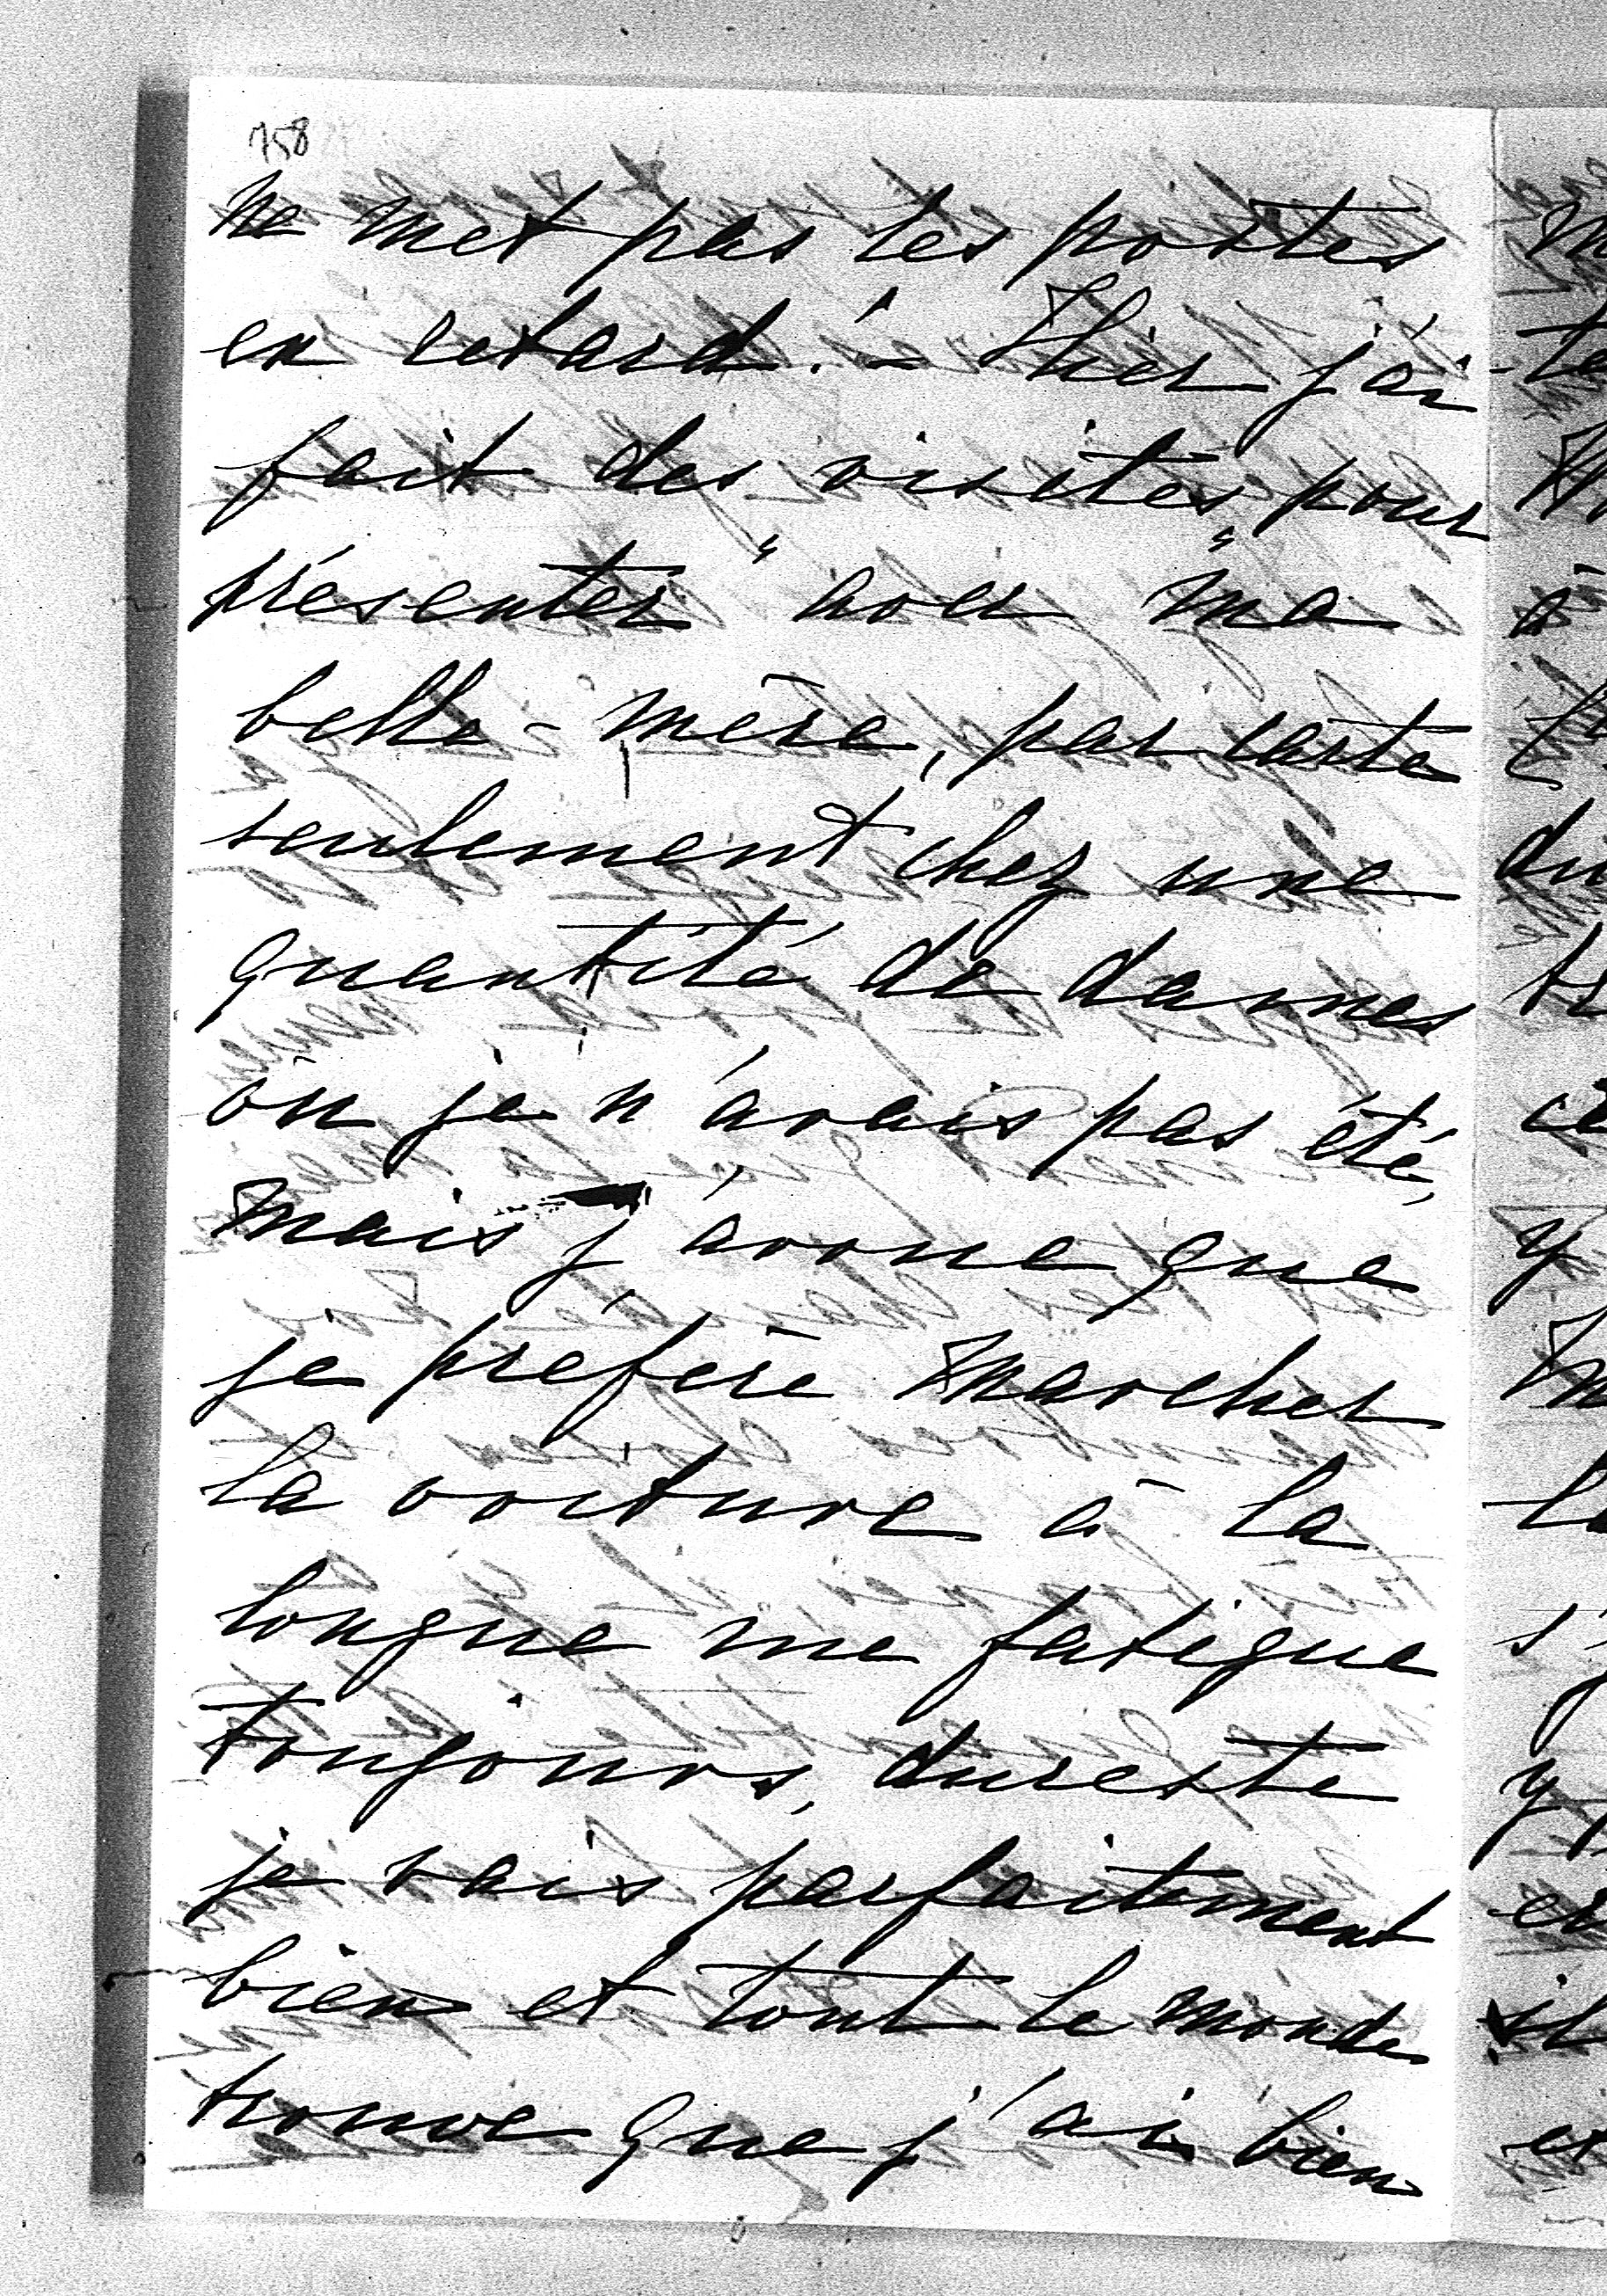 758
ne met pas les postes
en retard! - Hier j'ai
fait des visites, pour
présenter" avec ma
belle-mère, par carte
seulement chez une
quantité de dames
où je n'avais pas été,
mais j'avoue que
je préfère marcher
la voiture à la
longue me fatigue
toujours, dureste
je vais parfaitement
bien et tout le monde
trouve que j'ai bien